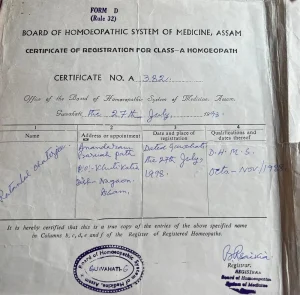 FORM D
(Rule 32)
BOARD OF HOMOEOPATHIC SYSTEM OF MEDICINE, ASSAM
CERTIFICATE OF REGISTRATION FOR CLASS-A HOMOEOPATH
CERTIFICATE NO. A 382
Office of the Board of Homoeopathic System of Medicine, Assam
Guwahati, the 27th July, 1998
1 2 3 4
Name Address or appointment Date and place of registration Qualifications and dates thereof
Dated Guwahati
the 27th July,
1998.
D.H.M.S.
Nagaon
Assam.
It is hereby certified that this is a true copy of the entries of the above specified name
in Columns b, c, d, e and f of the Register of Registered Homoeopaths.
Board of Homoeopathic System of Medicine, Assam
GUWAHATI-6
Registrar,
REGISTRAR
Board of Homoeopathic
System of Medicine